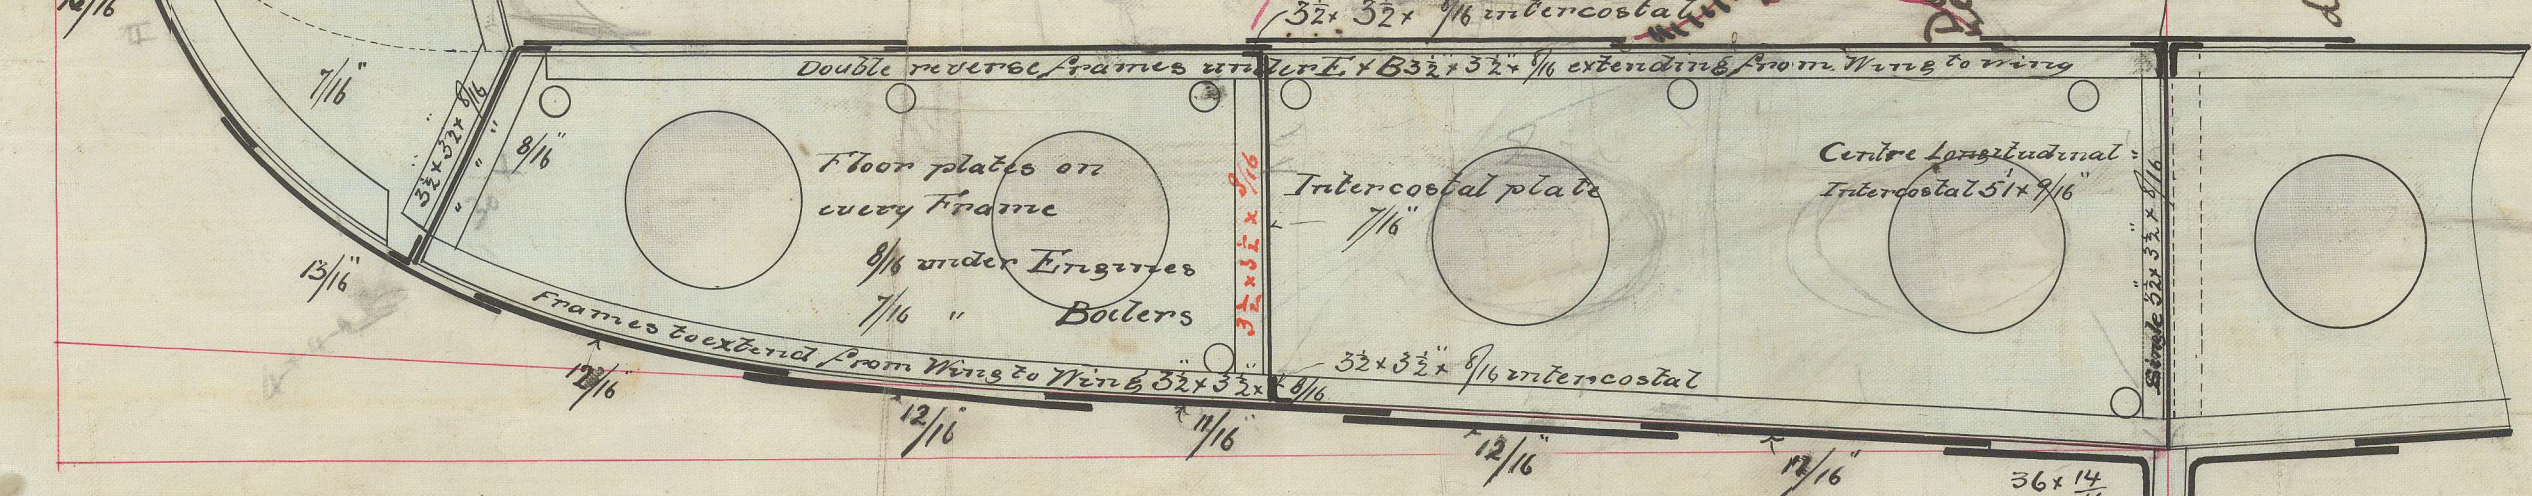 3½ × 3½ × 8/16 intercostal
Double reverse frames under E × B 3½" × 3½" × 8/16 extending from Wing to wing
7/16"
3½ × 3½ × 8/16
8/16"
Floor plates on
every Frame
8/16 under Engines
7/16 " Boilers
3½ × 3½ × 8/16
Intercostal plate
7/16"
Centre Longitudinal =
Intercostal 51 × 9/16"
Single 3½ × 3½ × 8/16
Frames to extend from Wing to Wing 3½" × 3½" × 8/16
3½ × 3½" × 8/16 intercostal
13/16"
12/16"
12/16"
11/16"
12/16"
12/16"
36 × 14